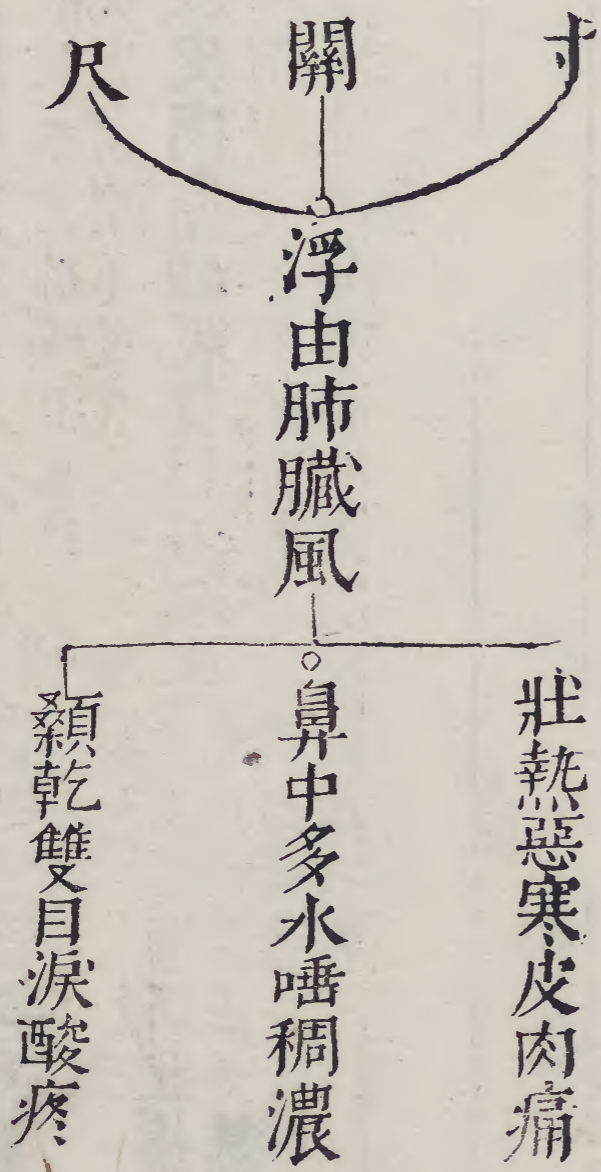 寸
關
尺
浮由肺臟風
壯熱惡寒皮肉痛
鼻中多水唾稠濃
顙乾雙目淚酸疼